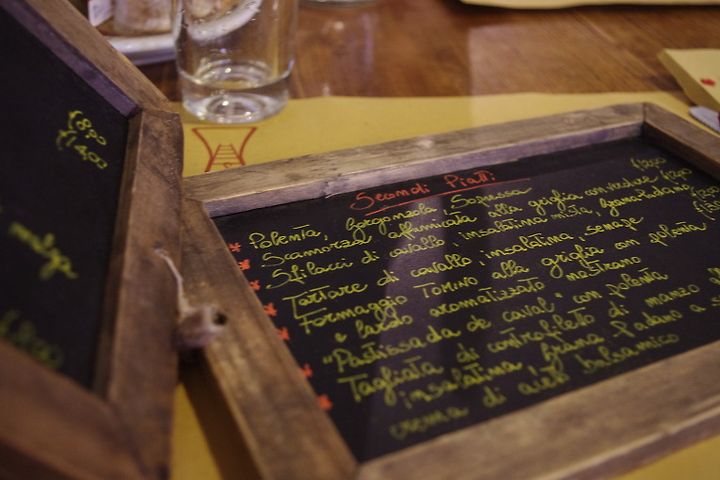 €8,00
€14,00
malga
Secondi Piatti
Polenta, gorgonzola, Sopressa
Scamorza affumicata alla griglia con verdure €12,00
Sfilacci di cavallo, insalatina mista, grana padano
Tartare di cavallo, insalatina, senape
Formaggio Tomino alla griglia con polenta
e lardo aromatizzato nostrano
"Pastissada de caval" con polenta
Tagliata di controfileto di manzo
insalatina, grana padano a s
crema di aceto balsamico